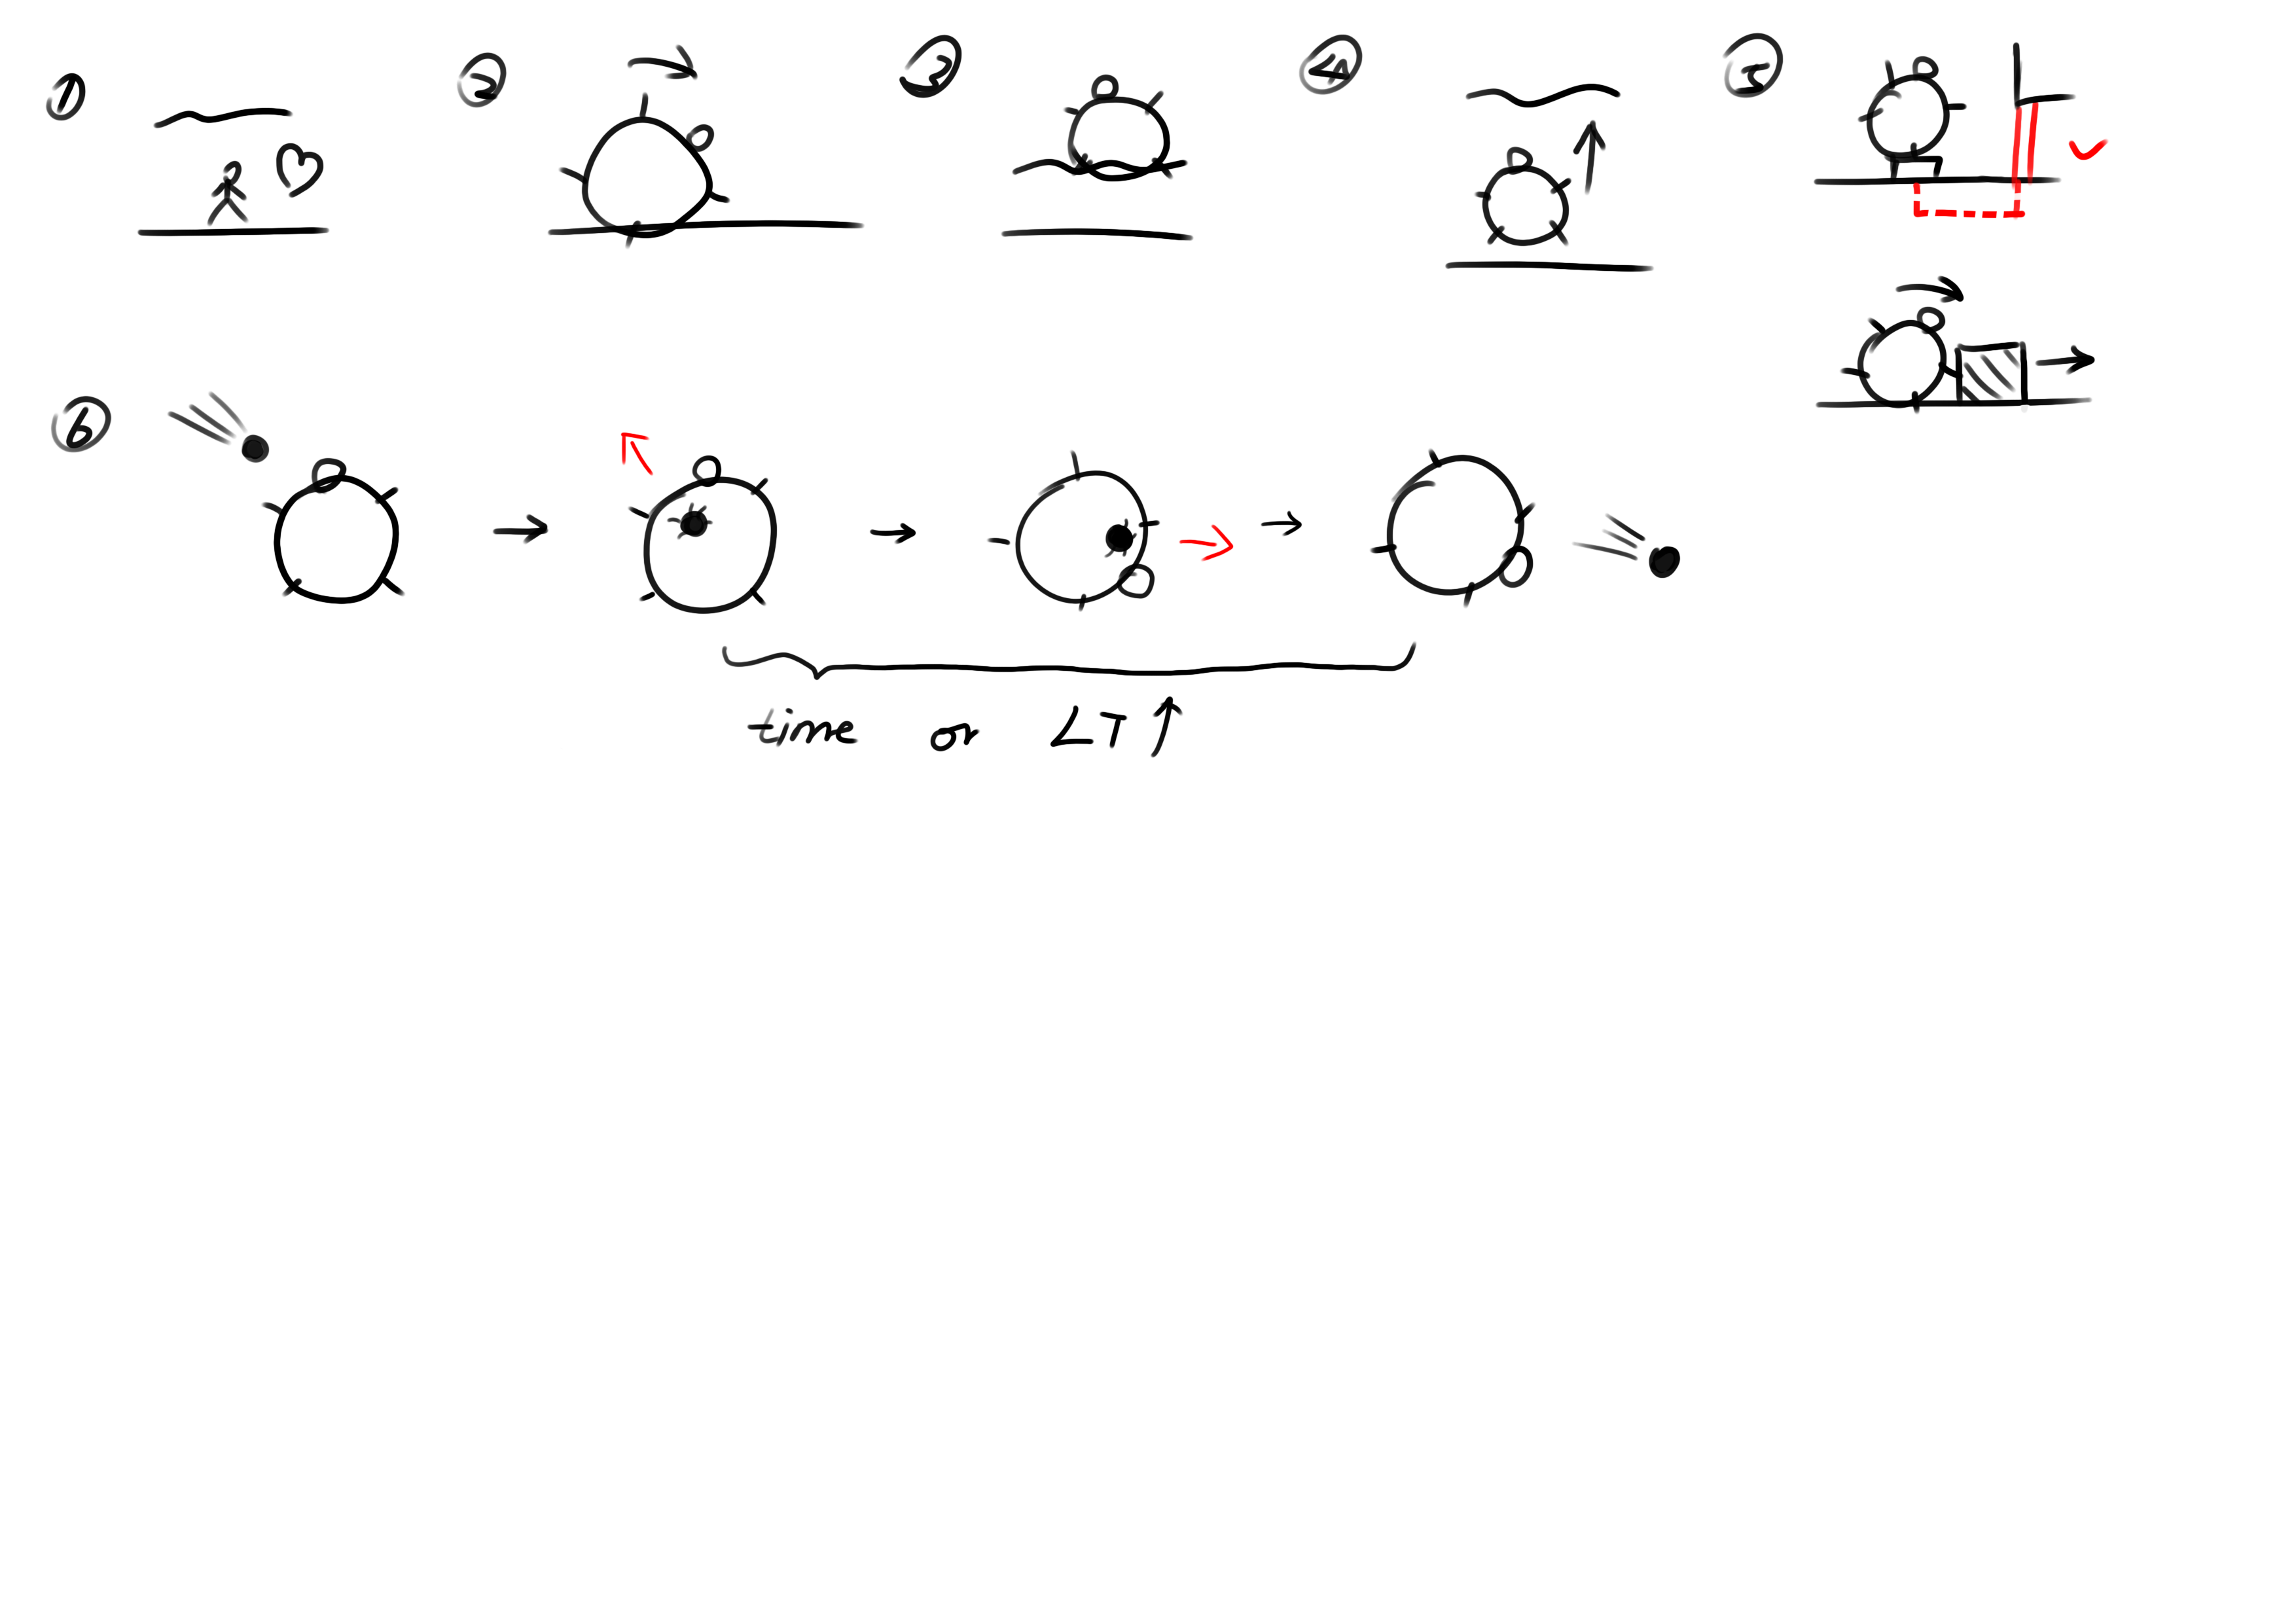 ①
②
③
④
⑤
⑥
time or LT↑